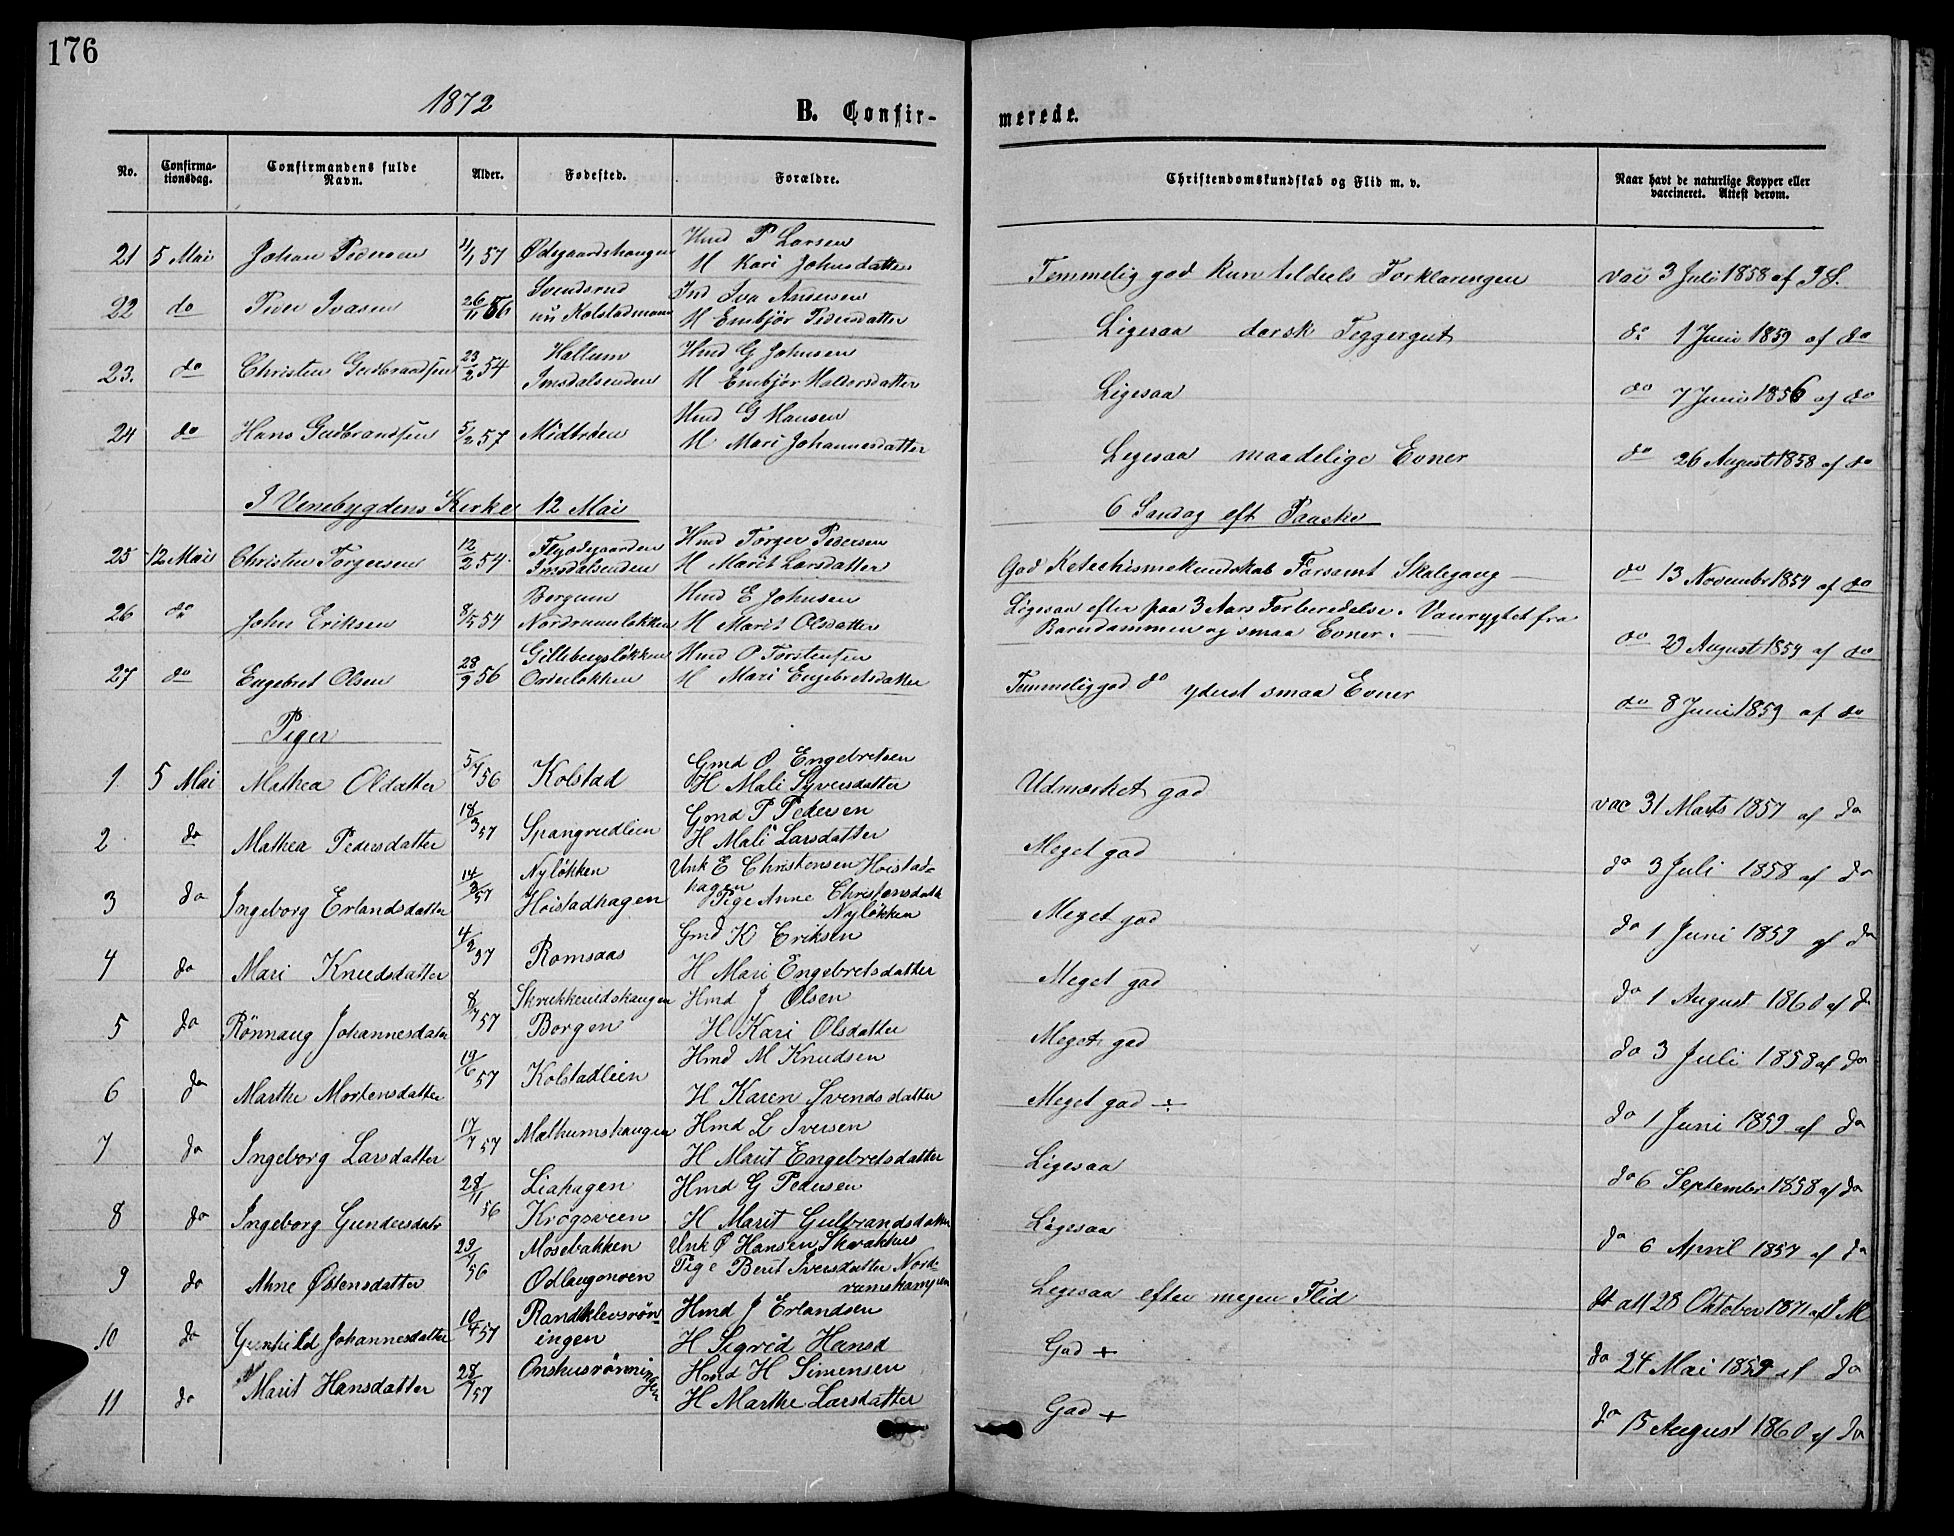 176
1872
B. Confir-
merede.
No.
Confirma-
tionsdag.
Confirmandens fulde
Navn.
Alder.
Fødested.
Forældre.
Christendomskundskab og Flid m. v.
Naar havt de naturlige Kopper eller
vaccineret. Attest derom.
21 5 Mai Johan Pedersen 4/1 57 Ødegaardshaugen Hmd P Larsen
H Kari Johnsdatter
Temmelig god kun tildeels Forklaringen vac 3 Juli 1858 af
22 do Iversen 26/11 56 Svendsrud
nu Kolstadmoen Ind Iva Andersen
H Embjør Pedersdatter
Ligesaa dorsk Teggergut do 1 Juni 1859 af do
23. do Christen Gudbrandsen 23/2 54 Hallum
Imsdalsenden Hmd G Johnsen
H Embjør Haldorsdatter
Ligesaa do 7 Juni 1856 af do
24 do Hans Gudbrandsen 5/2 57 Midtøen Hmd G Hansen
H Mari Johannesdatter
Ligesaa maadelige Evner do 26 August 1858 af do
I Venebygdens Kirke 12 Mai
6 Søndag eft Paaske
25 12 Mai Christen Torgersen 12/2 54 Flyødegaarden
Imsdalsenden Hmd Torger Pedersen
H Marit Larsdatter
God Ketechismekundskab Forsømt Skolegang — do 13 November 1854 af do
26 do John Eriksen 8/5 54 Borgum
Nordrumsløkken Hmd E Johnsen
H Marit Olsdatter
Ligesaa efter paa 3 Aars Forberedelse. Vanrygtet fra
Barndommen og smaa Evner. do 29 August 1854 af do
27 do Engebret Olsen 28/9 56 Gillebergsløkken
Hmd O Torstensen
H Mari Engebretsdatter
Temmelig god do yderst smaa Evner do 8 Juni 1859 af do
Piger
1. 5 Mai Mathea Oldatter 5/7 56 Kolstad Gmd O Engebretsen
H Mali Syversdatter
Udmærket god vac 31 Marts 1857 af do
2 do Mathea Pedersdatter 18/3 57 Spangrudlien Gmd P Pedersen
H Mali Larsdatter
Meget god do 3 Juli 1858 af do
3 do Ingeborg Erlandsdatter 14/3 57 Nyløkken
Hoistadhagen Unk E Christensen Hoistad-
hagen
Pige Anne Christensdatt
Nyløkken
Meget god do 1 Juni 1859 af do
4 do Mari Knudsdatter 4/2 57 Romsaas Gmd K Eriksen
H Mari Engebretsdatter
Meget god do 1 August 1860 af d
5 do Rønnaug Johannesdatter 8/7 57 Skrukkerudshaugen
Borgen Hmd J Olsen
H Kari Olsdatter
Meget god do 3 Juli 1858 af do
6 do Marthe Mortensdatter 19/6 57 Kolstadlien Hmd M Knudsen
H Karen Svendsdatter
Meget god ÷ do 1 Juni 1859 af do
7 do Ingeborg Larsdatter 17/7 57 Mælhumshaugen Hmd L Iversen
H Marit Engebretsdatter
Ligesaa do 6 September 1858 af do
8 do Ingeborg Gundersdatr 28/11 56 Liahagen
Krogsveen Hmd G Pedersen
H Marit Gulbrandsdatter
Ligesaa do 6 April 1857 af do
9 do Ahne Østensdatter 29/9 56 Mosebakken
Odlaugonoen Unk Ø Hansen Skrakhus
Pige Berit Iversdatter Nord-
rumskampen
Ligesaa efter megen Flid att 28 Oktober 1871 af J M
10 do Gunhild Johannesdatter 10/4 57 Randklevsrøn-
ingen Hmd J Erlandsen
H Sigrid Hansd
God + do 24 Mai 1859 af do
11 do Marit Hansdatter 28/7 57 Onshusrønningen Hmd H Simensen
H Marthe Larsdatter
God + do 15 August 1860 af do